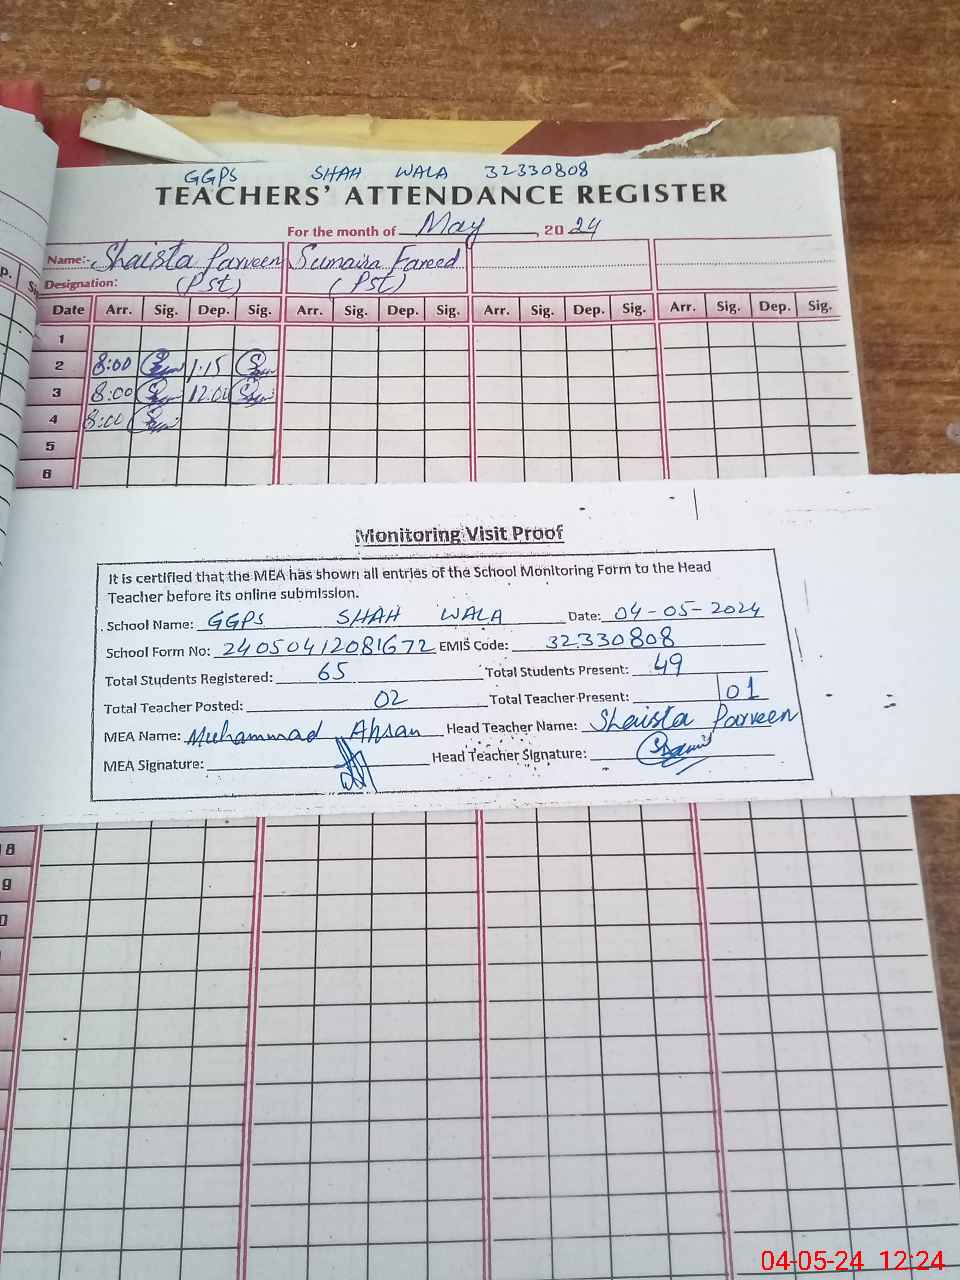 GGPS SHAH WALA 32330808
TEACHERS' ATTENDANCE REGISTER
For the month of May, 2024
Name:- Shaista Parveen Sumaira Fareed
Designation: (Pst) (Pst)
Date Arr. Sig. Dep. Sig. Arr. Sig. Dep. Sig. Arr. Sig. Dep. Sig. Arr. Sig. Dep. Sig.
1
2 8:00 1:15
3 8:00 12:00
4 8:00
5
6
Monitoring Visit Proof
It is certified that the MEA has shown all entries of the School Monitoring Form to the Head
Teacher before its online submission.
School Name: GGPS SHAH WALA Date: 04-05-2024
School Form No: 24050412081672 EMIS Code: 32330808
Total Students Registered: 65 Total Students Present: 49
Total Teacher Posted: 02 Total Teacher Present: 01
MEA Name: Muhammad Ahsan Head Teacher Name: Shaista Parveen
MEA Signature: Head Teacher Signature:
18
9
04-05-24 12:24